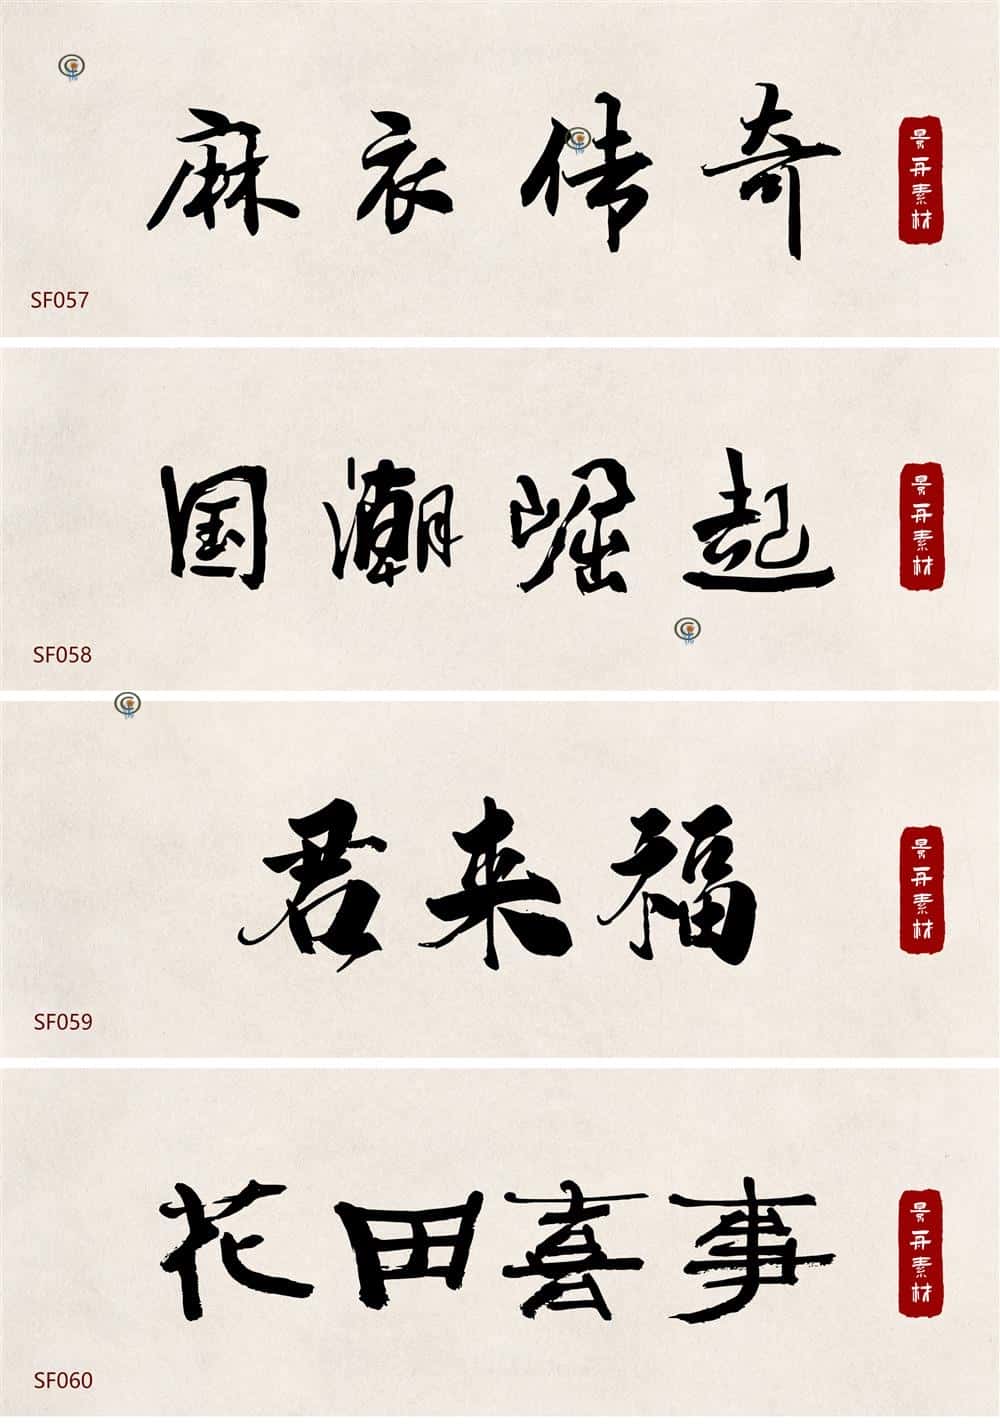 麻衣传奇
景舟素材
SF057
国潮崛起
景舟素材
SF058
君来福
景舟素材
SF059
花田喜事
景舟素材
SF060